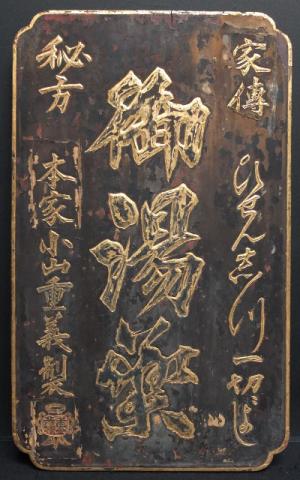 家傳
秘方
ひせん志つ一切によし
御湯薬
本家小山重義製